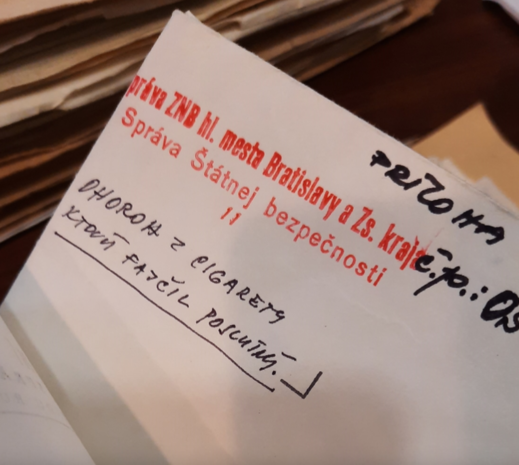 práva ZNB hl. mesta Bratislavy a Zs. kraja
Správa Štátnej bezpečnosti
11
PRÍLOHA
č.p.:
OHOROK Z CIGARETY
KTORÚ FAJČIL POSLUTNÝ.